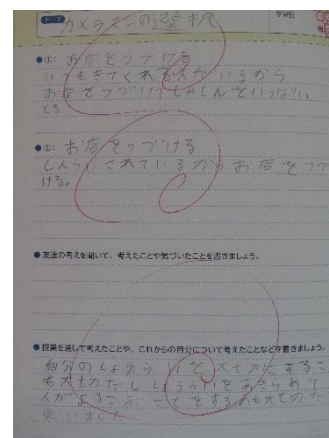 テーマ カメラマンの選択
●①:お店をつづける
いつもきてくれる人がいるから
お店をつづけてしゃしんをいっぱい
とる
●②:お店をつづける
しんらいされているからお店をつづ
ける。
●友達の考えを聞いて、考えたことや気づいたことを書きましょう。
●授業を通して考えたことや、これからの自分について考えたことなどを書きましょう。
自分のしょうらいを大切にするこ
も大切だし しょうらいをあきらめて
人がよろこぶことをするのも大切だと
思いました